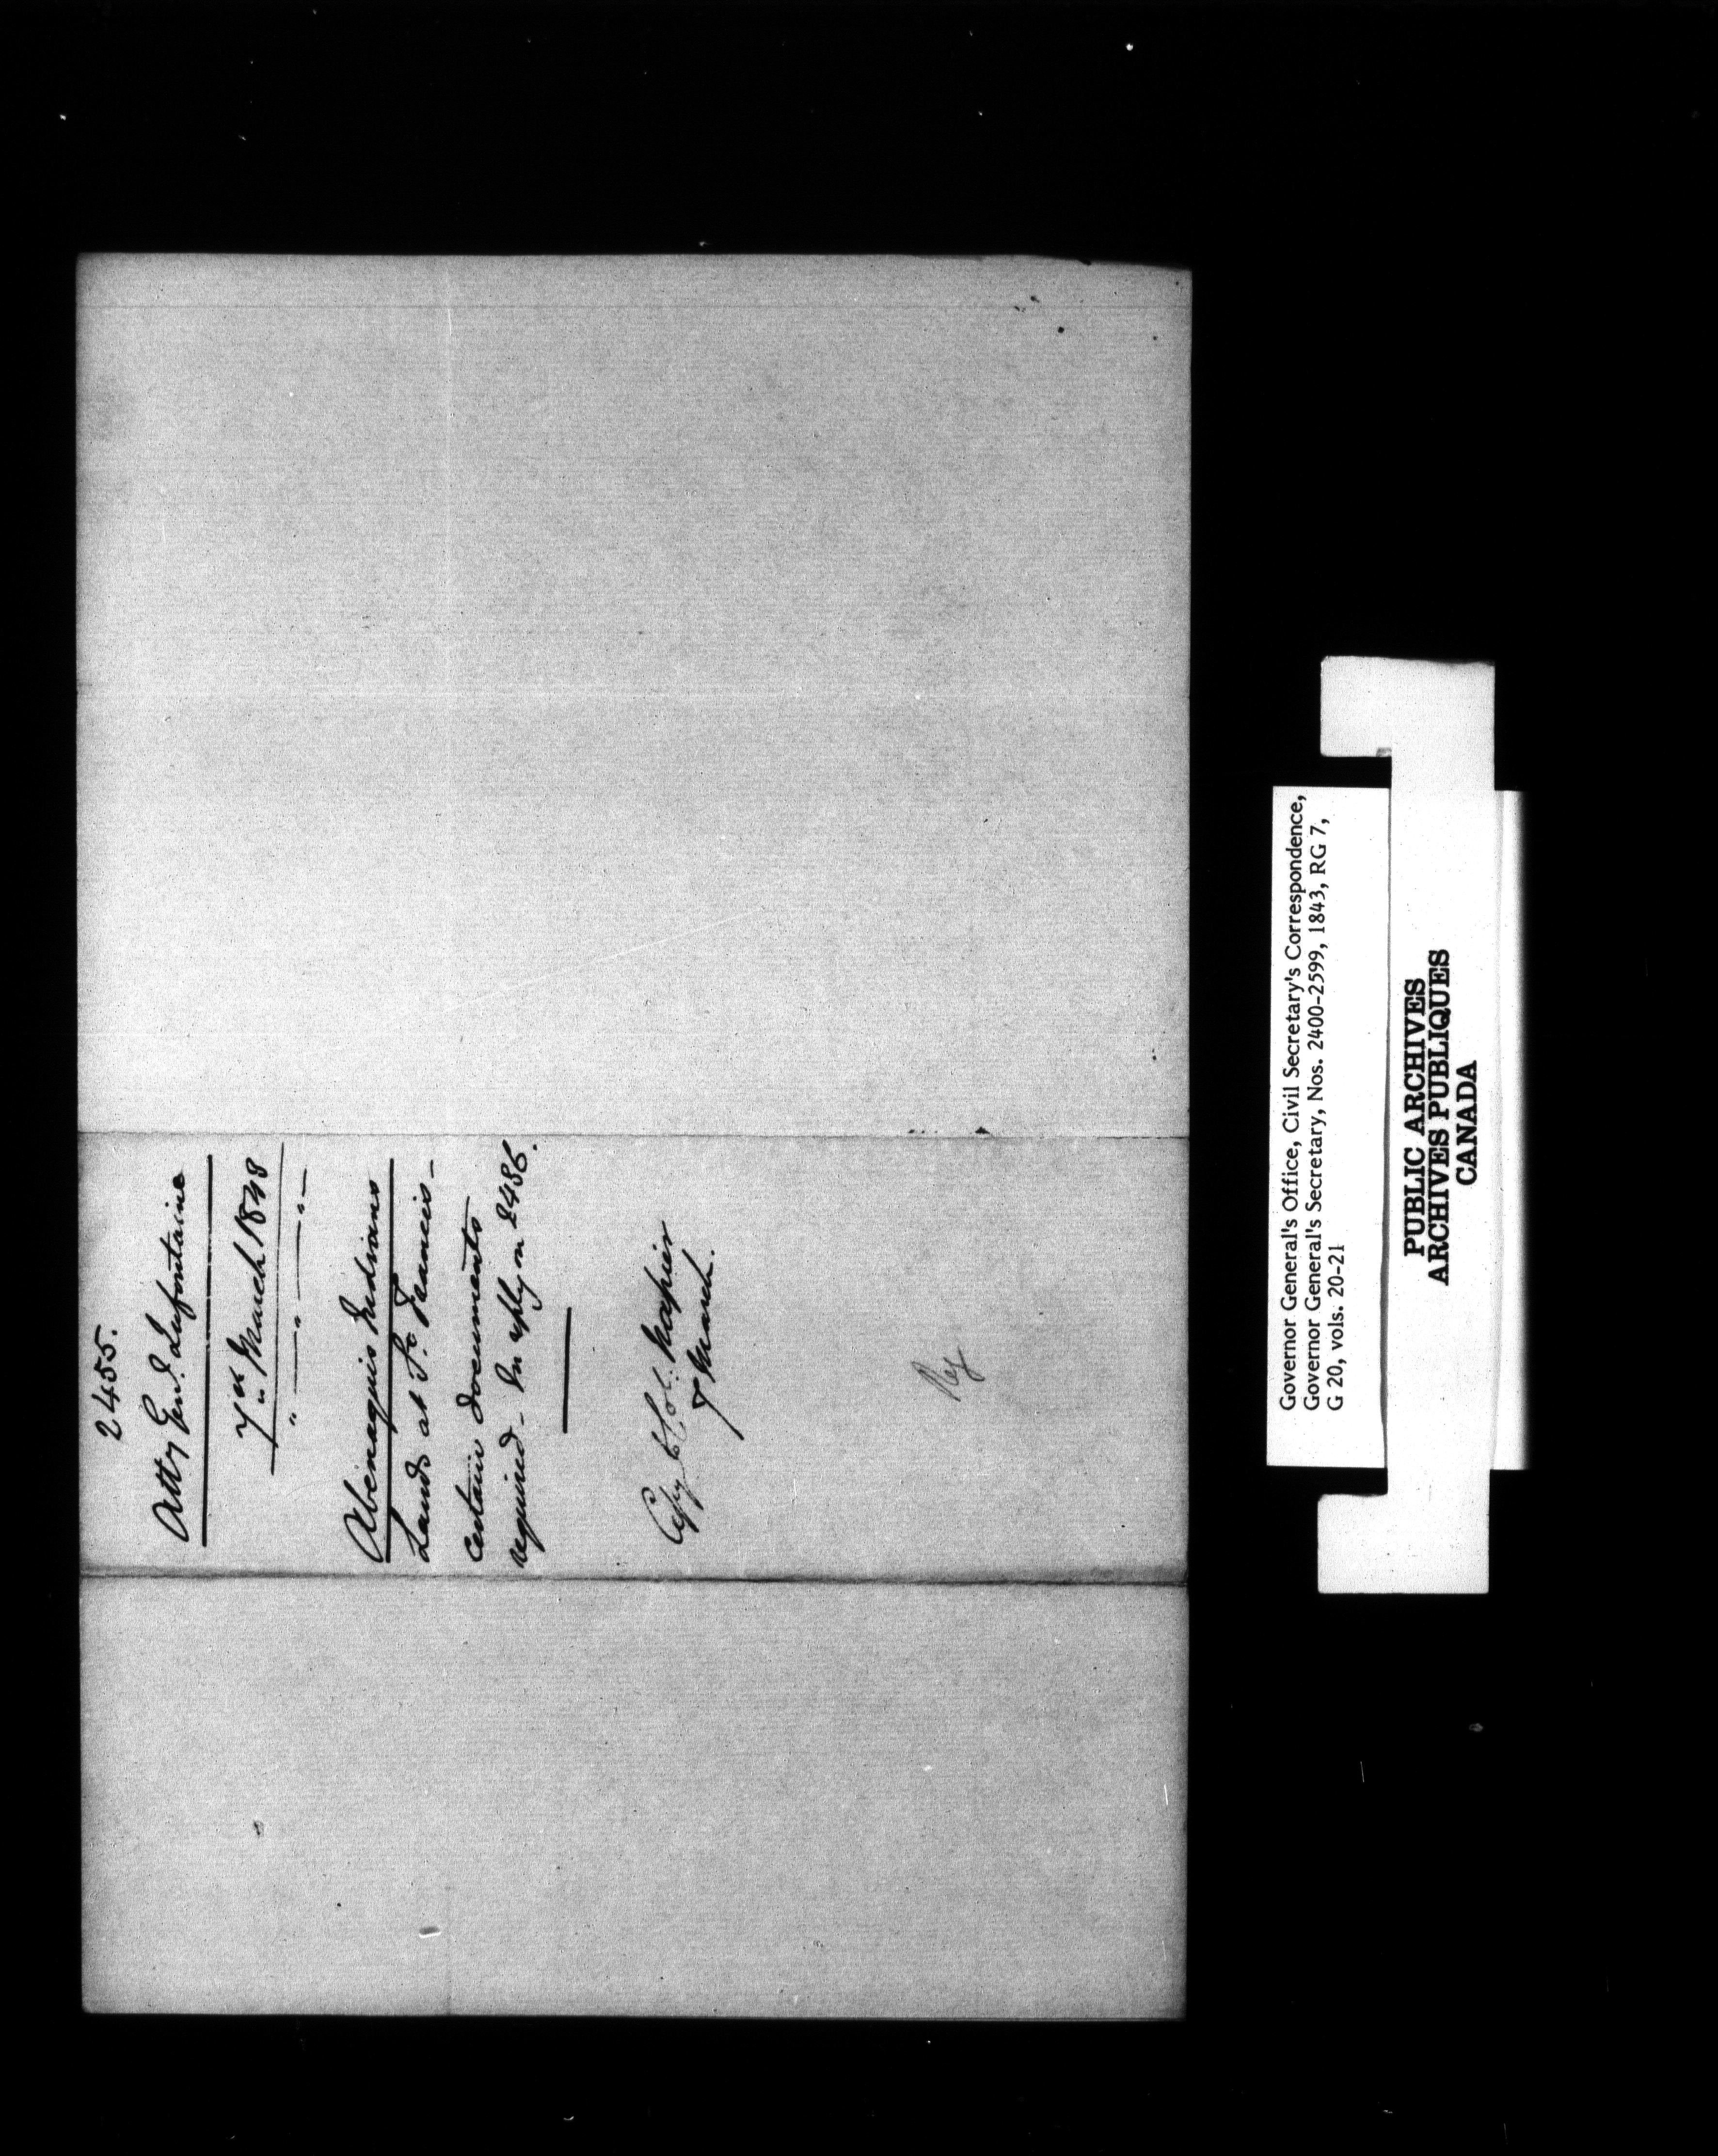 2455.
Atty Genl. Lafontaine
7th March 1848
Abenaquis Indians
Lands at St. Francis -
certain documents
required - In reply on 2436.
Copy to Col. Napier
7 March.
Reg
Governor General's Office, Civil Secretary's Correspondence,
Governor General's Secretary, Nos. 2400-2599, 1843, RG 7,
G 20, vols. 20-21
PUBLIC ARCHIVES
ARCHIVES PUBLIQUES
CANADA